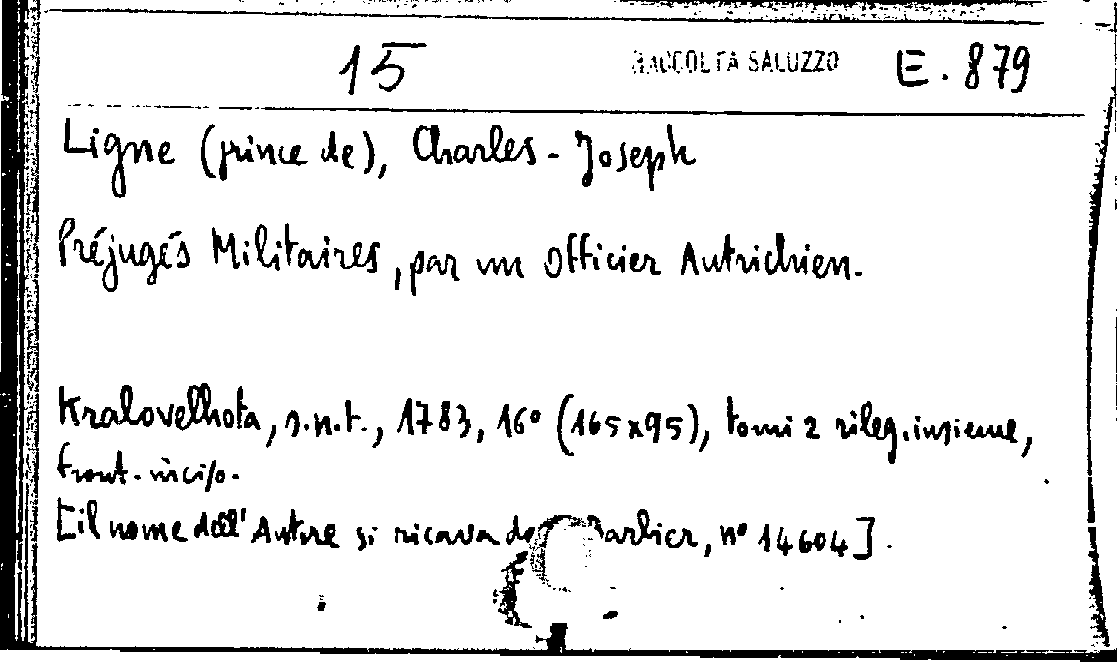 15 RACCOLTA SALUZZO E. 879
Ligne (prince de), Charles-Joseph
Préjugés Militaires, par un Officier Autrichien.
Kralovelhota, s.n.t., 1783, 16° (165x95), tomi 2 rileg. insieme,
front. inciso.
[il nome dell'Autore si ricava da Barbier, n° 14604].